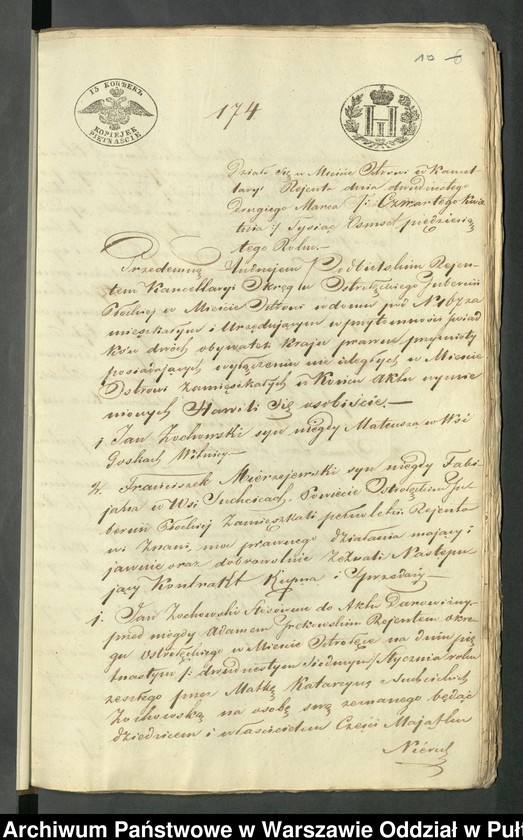 10 6
15 КОПѢЕКЪ
KOPIEJEK
PIĘTNAŚCIE
174
H I
Działo się w Mieście Ostrowi w Kancel
laryi Rejenta dnia dwudziestego
drugiego Marca /: Czwartego Kwie
tnia :/ Tysiąc Osmset pięćdziesią
tego Roku.—
Przedemną Andrzejem Podbielskim Rejen-
tem Kancellaryi Okręgu Ostrołęckiego Gubernii
Płockiej w Mieście Ostrowi w domu pod N° 167 za
mieszkałym i Urzędującym w przytomności świad
ków dwóch obywateli kraju prawem przymioty
posiadających wyłączeniu nie uległych w Mieście
Ostrowi zamieszkałych w końcu Aktu wymie
nionych Stawili się osobiście.—
1. Jan Żochowski syn niegdy Mateusza w Wsi
Goskach
2. Franciszek Mierzejewski syn niegdy Fabi
jana w Wsi Suchcicach, Powiecie Ostrołęckim Gu
bernii Płockiej Zamieszkali pełnoletni Rejento
wi Znani, moc prawnego działania mający i
jawnie oraz dobrowolnie Zeznali Następu
jący Kontrakt Kupna i Sprzedaży—
1. Jan Żochowski stósownie do Aktu Darowizny
przed niegdy Adamem Rejentem okrę
gu Ostrołęckiego w Mieście Ostrołęce na dniu pię
tnastym /: dwudziestym siedmym :/ Stycznia roku
zeszłego przez Matkę Katarzynę z Suchcickich
Żochowską na osobę swą zeznanego będąc
dziedzicem i właścicielem Części Majątku
Nieru
Archiwum Państwowe w Warszawie Oddział w Puł